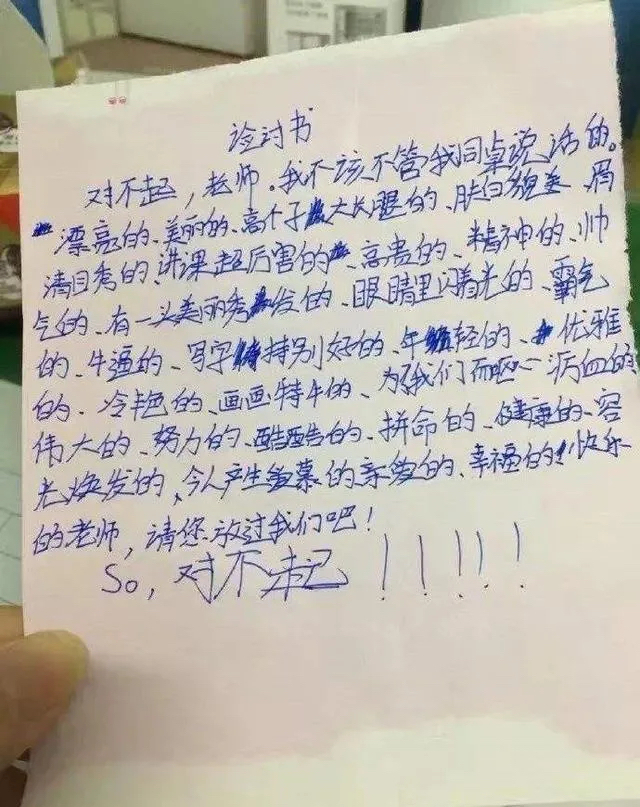 诊讨书
对不起，老师。我不该不管我同桌说话的。
漂亮的、美丽的、高个子大长腿的、肤白貌美、眉
清目秀的、讲课超厉害的、高贵的、精神的、帅
气的、有一头美丽秀发的、眼睛里闪着光的、霸气
的、牛逼的、写字特别好的、年轻的、优雅
的、冷艳的、画画特牛的、为了我们而呕心沥血的
伟大的、努力的、酷酷的、拼命的、健康的、容
光焕发的、令人产生羡慕的亲爱的、幸福的快乐
的老师，请您放过我们吧！
So，对不起！！！！！